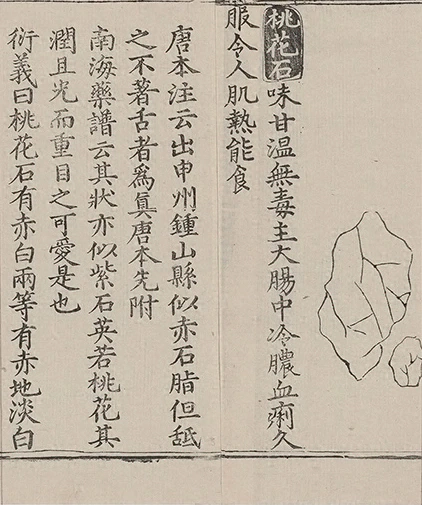 桃花石味甘溫無毒主大腸中冷膿血痢久
服令人肌熱能食
唐本注云出申州鍾山縣似赤石脂但舐
之不著舌者爲眞唐本先附
南海藥譜云其狀亦似紫石英若桃花其
潤且光而重目之可愛是也
衍義曰桃花石有赤白兩等有赤地淡白